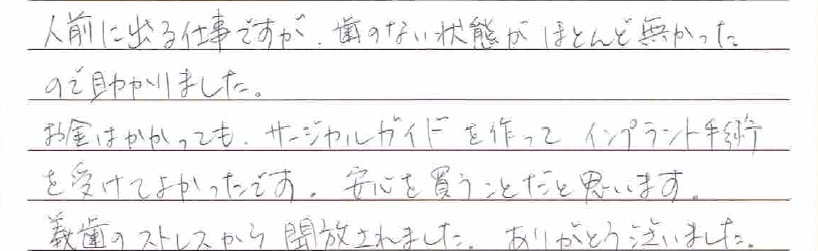 人前に出る仕事ですが、歯のない状態がほとんど無かった
ので助かりました。
お金はかかっても、サージカルガイドを作って インプラント手術
を受けてよかったです。安心を買うことだと思います。
義歯のストレスから開放されました。ありがとう御座いました。